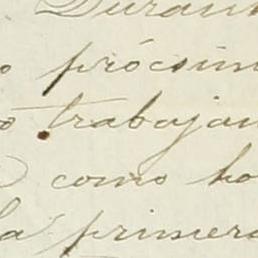 Durant
o prócsim
o trabajan
como ho
la primera